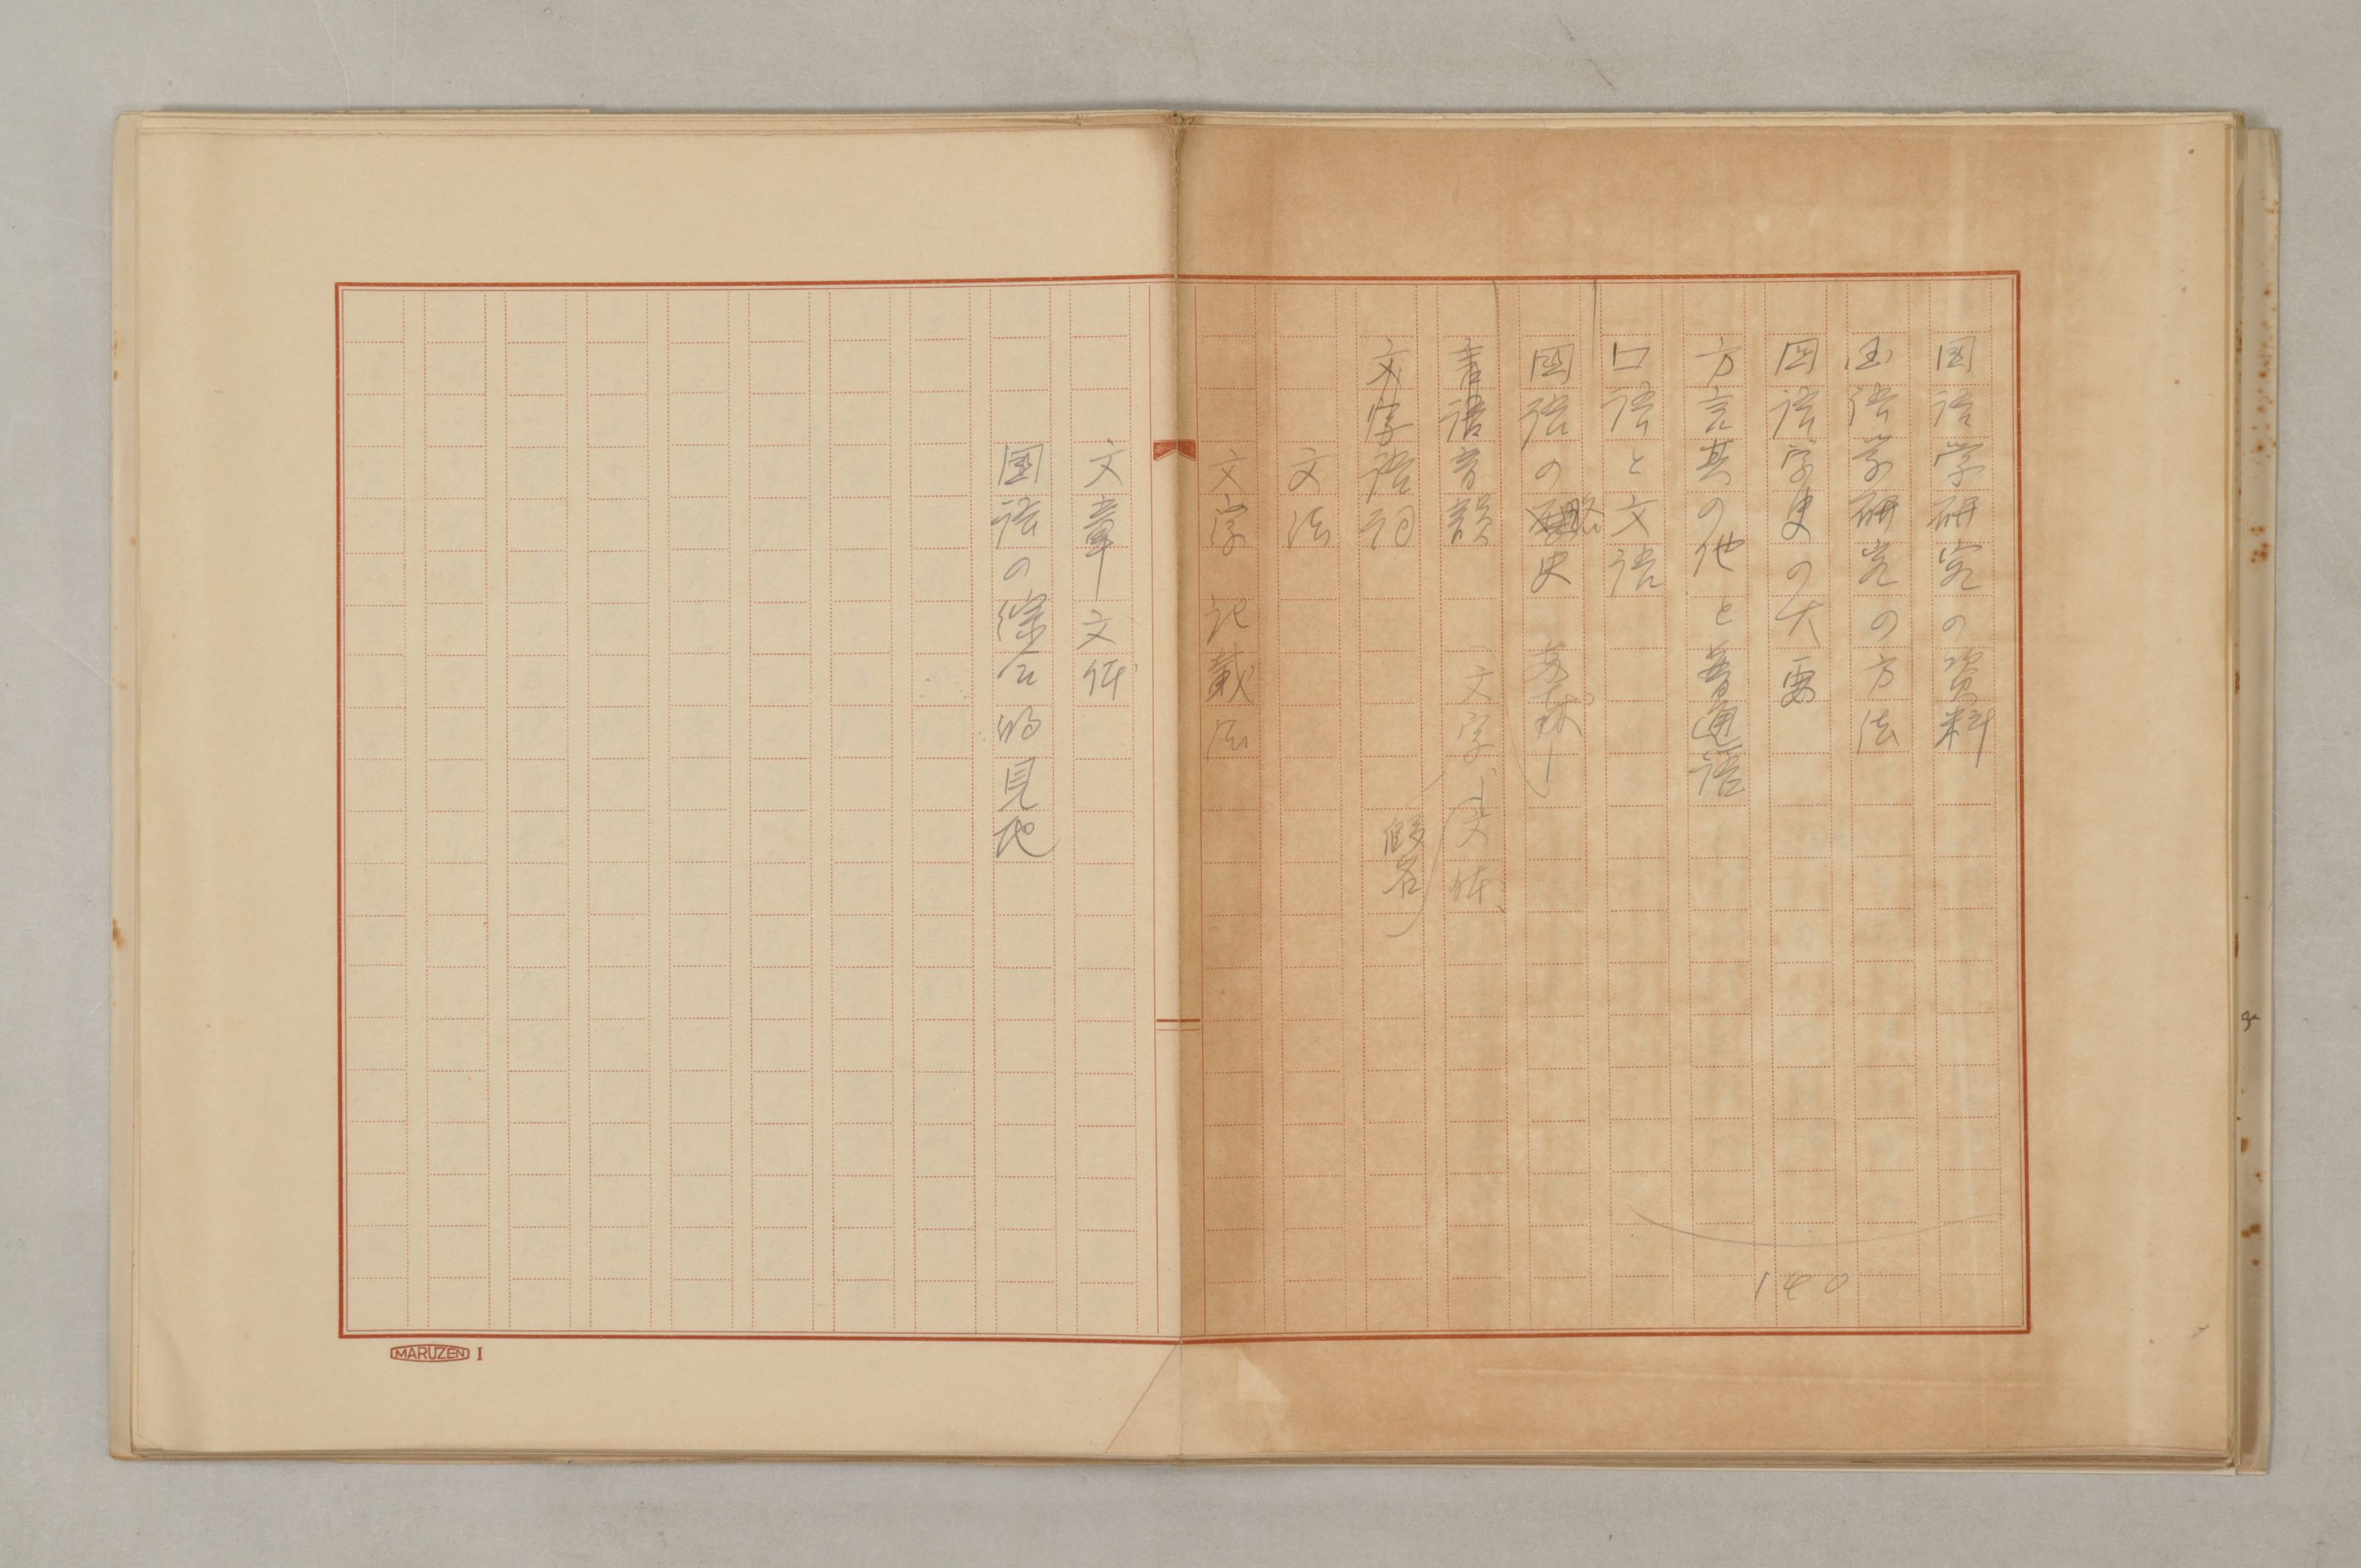 国語学研究の資料
国語学研究の方法
国語学史の大要
方言其の他と普通語
口語と文語
国語の略史
音韻
文字、文体、
假名
語詞
文法
文字 記載法
文章 文体
国語の綜合的見地
140
MARUZEN I